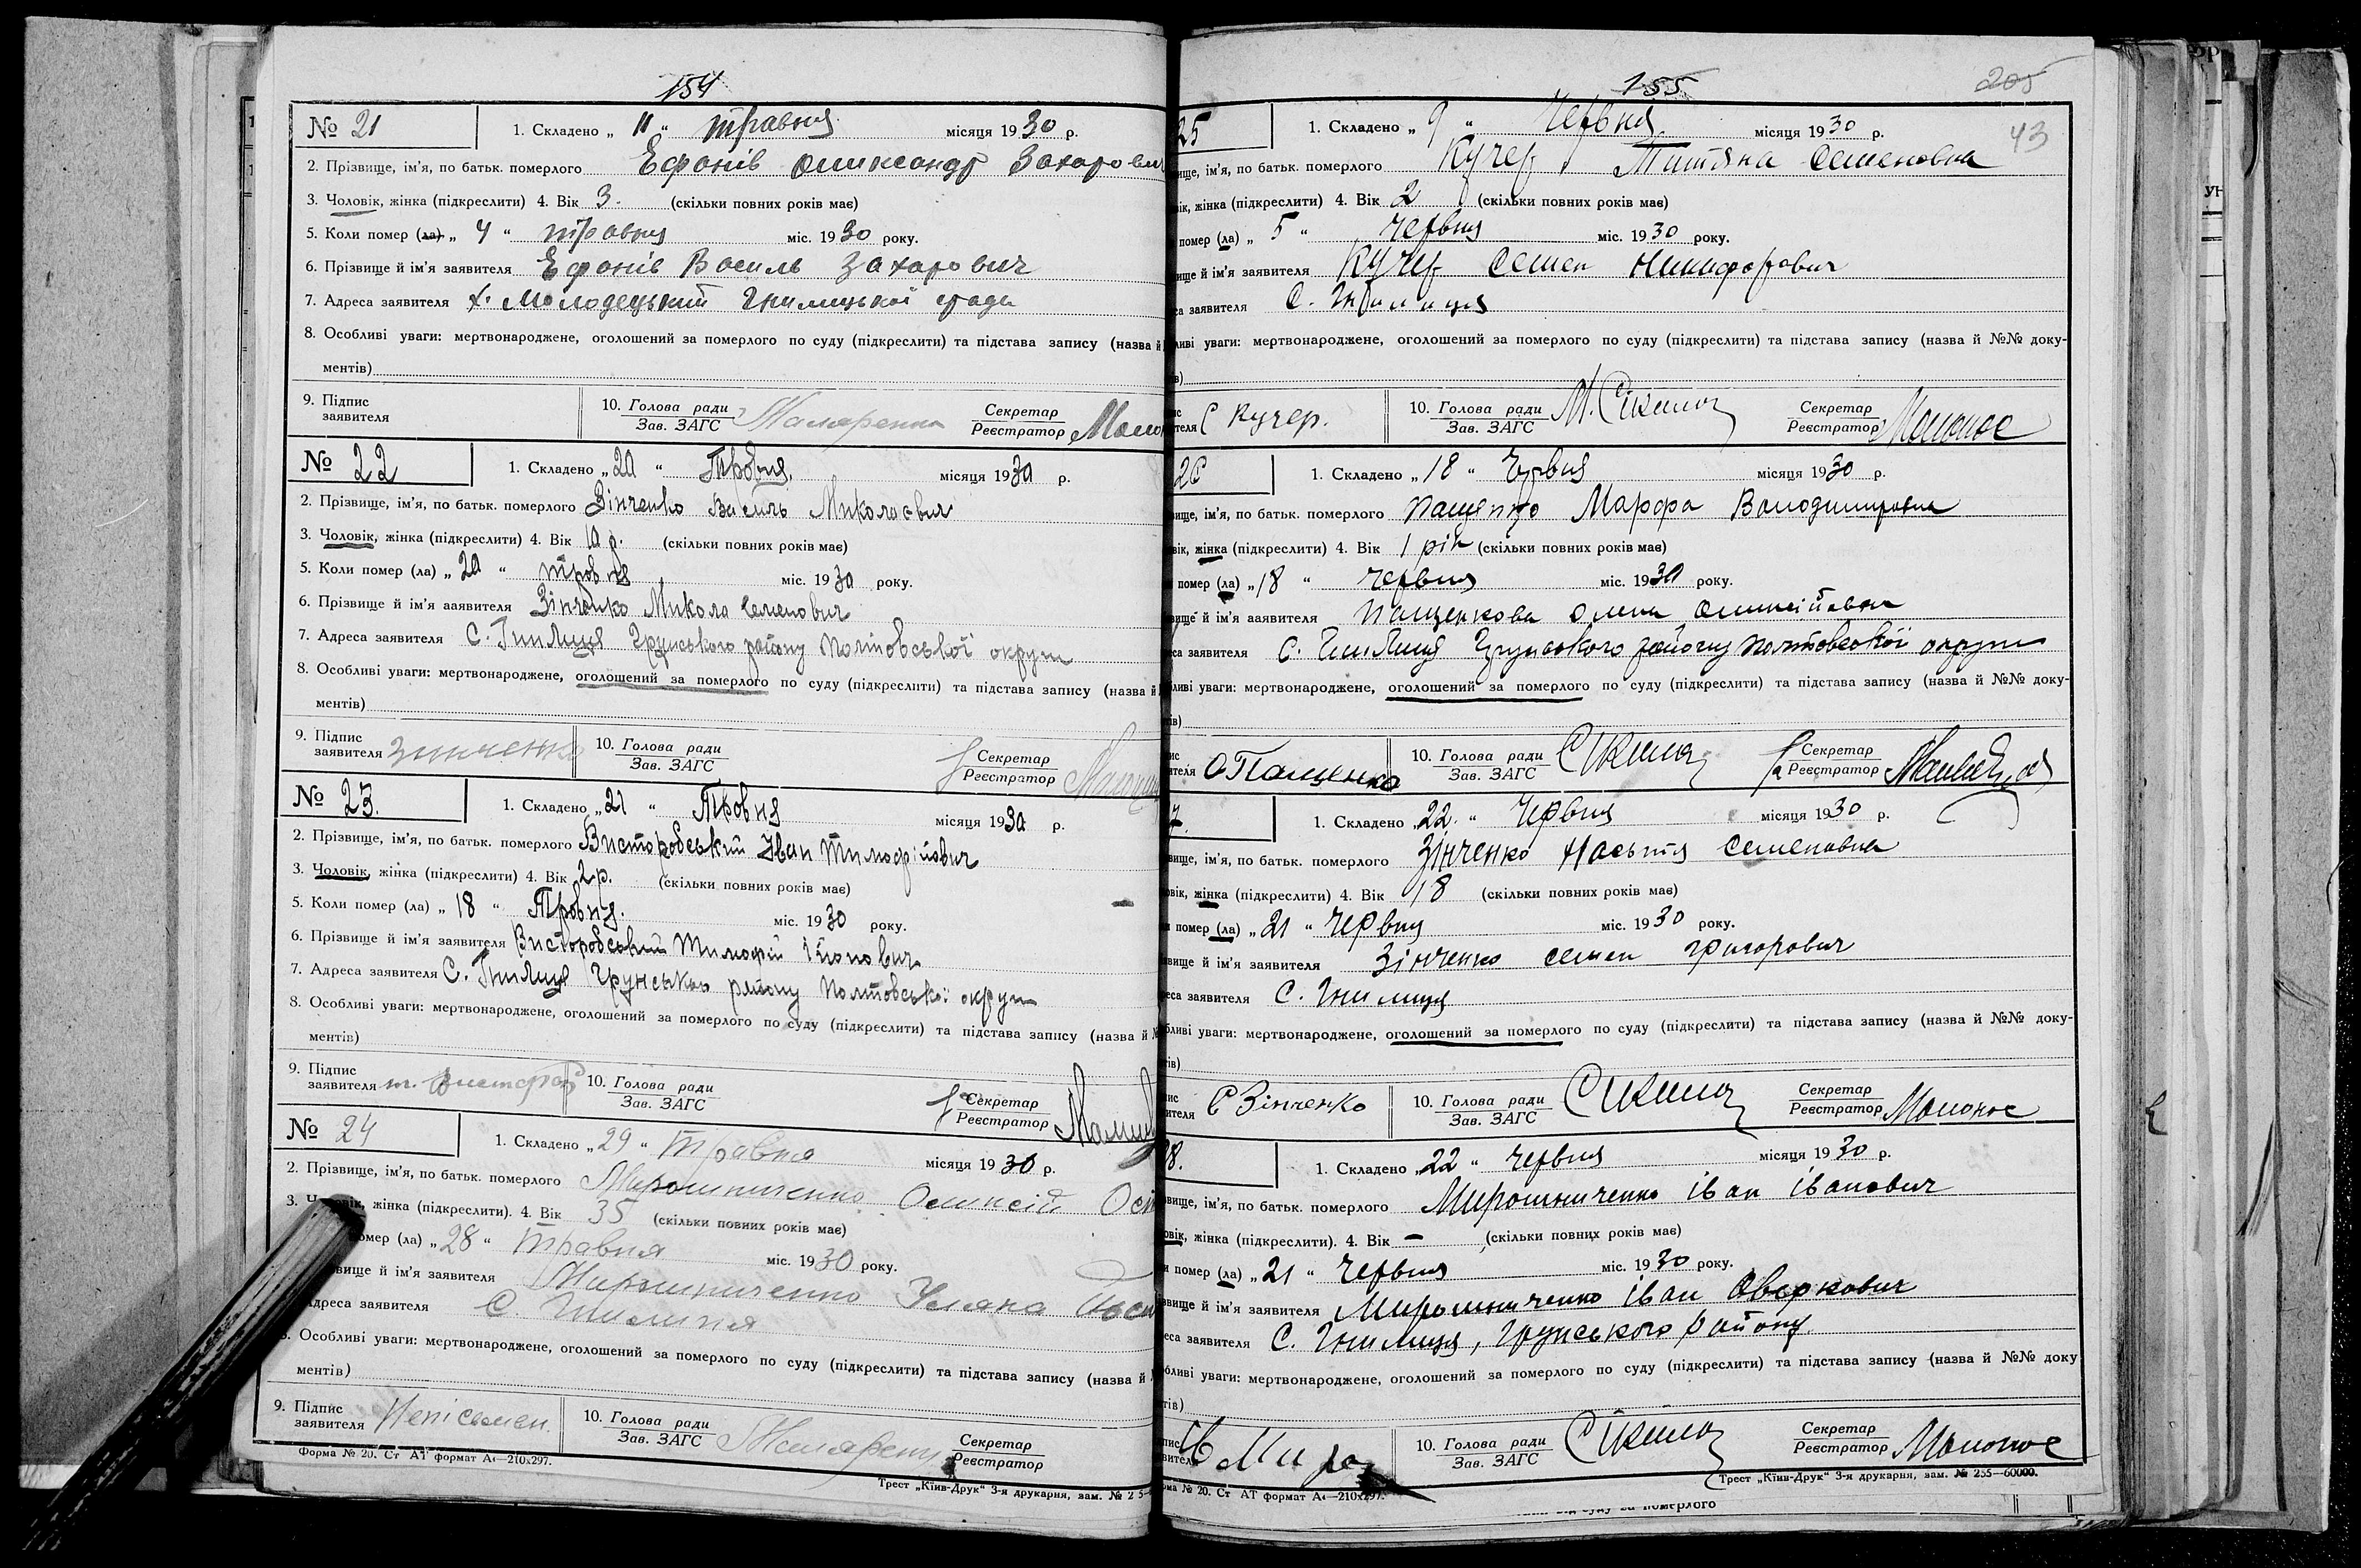 154
№ 21
1. Складено „ 11 “ травня місяця 1930 р.
2. Прізвище, ім'я, по батьк. померлого Ефанів Олександр Захарович
3. Чоловік, жінка (підкреслити) 4. Вік 3. (скільки повних років має)
5. Коли помер (ла) „ 4 “ травня міс. 1930 року.
6. Прізвище й ім'я заявителя Ефанів Василь Захарович
7. Адреса заявителя х. Молодецький Гнилицької ради
8. Особливі уваги: мертвонароджене, оголошений за померлого по суду (підкреслити) та підстава запису (назва й
ментів)
9. Підпис заявителя
10. Голова ради Зав. ЗАГС Маляренко Секретар Реєстратор
№ 22
1. Складено „ 20 “ Тровня. місяця 1930 р.
2. Прізвище, ім'я, по батьк. померлого Зінченко Василь Миколаович
3. Чоловік, жінка (підкреслити) 4. Вік 10 р. (скільки повних років має)
5. Коли помер (ла) „ 20 “ тровня міс. 1930 року.
6. Прізвище й ім'я заявителя Зінченко Микола Семенович
7. Адреса заявителя С. Гнилиця Грунського району Полтовської округи
8. Особливі уваги: мертвонароджене, оголошений за померлого по суду (підкреслити) та підстава запису (назва й
ментів)
9. Підпис заявителя Зинченко
10. Голова ради Зав. ЗАГС Секретар Реєстратор
№ 23.
1. Складено „ 21 “ Тровня місяця 1930 р.
2. Прізвище, ім'я, по батьк. померлого Висторобський Іван Тимофійович
3. Чоловік, жінка (підкреслити) 4. Вік 2 р. (скільки повних років має)
5. Коли помер (ла) „ 18 “ Тровня. міс. 1930 року.
6. Прізвище й ім'я заявителя Висторобський Тимофій
7. Адреса заявителя С. Гнилиця Грунського району Полтовської округи
8. Особливі уваги: мертвонароджене, оголошений за померлого по суду (підкреслити) та підстава запису (назва й
ментів)
9. Підпис заявителя т.
10. Голова ради Зав. ЗАГС Секретар Реєстратор
№ 24
1. Складено „ 29 “ травня місяця 1930 р.
2. Прізвище, ім'я, по батьк. померлого Мирошниченко Олексій
3. жінка (підкреслити). 4. Вік 35 (скільки повних років має)
помер (ла) „ 28 “ травня міс. 1930 року.
й ім'я заявителя Мирошниченко Уляна
Адреса заявителя С. Гнилиця
Особливі уваги: мертвонароджене, оголошений за померлого по суду (підкреслити) та підстава запису (назва й
ментів)
9. Підпис заявителя Неписьмен.
10. Голова ради Зав. ЗАГС Маляренко Секретар Реєстратор
Форма № 20. Ст АТ формат А4—210x297.
Трест „Київ-Друк“ 3-я друкарня, зам. № 25
155
205
43
25
1. Складено „ 9 “ Червня. місяця 1930 р.
ім'я, по батьк. померлого Кучер Титяна Семеновна
жінка (підкреслити) 4. Вік 2 (скільки повних років має)
помер (ла) „ 5 “ червня міс. 1930 року.
й ім'я заявителя Кучер Семен Никифорович
заявителя С. Гнилиця
уваги: мертвонароджене, оголошений за померлого по суду (підкреслити) та підстава запису (назва й №№ доку-
С Кучер.
10. Голова ради Зав. ЗАГС М. Сікало Секретар Реєстратор Мононос
26
1. Складено „ 18 “ Червня місяця 1930 р.
ім'я, по батьк. померлого Пащенко Марфа Володимировна
жінка (підкреслити) 4. Вік 1 рік (скільки повних років має)
помер (ла) „ 18 “ червня міс. 1930 року.
й ім'я заявителя Пащенкова Олена
заявителя С. Гнилиця Грунського району Полтовської округи
уваги: мертвонароджене, оголошений за померлого по суду (підкреслити) та підстава запису (назва й №№ доку-
О Пащенко
10. Голова ради Зав. ЗАГС Сікало Секретар Реєстратор
7.
1. Складено „ 22. “ Червня місяця 1930 р.
ім'я, по батьк. померлого Зінченко Насьтя Семеновна
жінка (підкреслити) 4. Вік 18 (скільки повних років має)
помер (ла) „ 21 “ червня міс. 1930 року.
й ім'я заявителя Зінченко Семен Григорович
заявителя С. Гнилиця
уваги: мертвонароджене, оголошений за померлого по суду (підкреслити) та підстава запису (назва й №№ доку-
С Зінченко
10. Голова ради Зав. ЗАГС Сікало Секретар Реєстратор Мононос
8.
1. Складено „ 22 “ червня місяця 1930 р.
ім'я, по батьк. померлого Мирошниченко Іван Іванович
жінка (підкреслити). 4. Вік — (скільки повних років має)
помер (ла) „ 21 “ Червня міс. 1930 року.
й ім'я заявителя Мирошниченко Іван Оверкович
заявителя С. Гнилиця, Грунського району.
уваги: мертвонароджене, оголошений за померлого по суду (підкреслити) та підстава запису (назва й №№ доку
10. Голова ради Зав. ЗАГС Сікало Секретар Реєстратор Мононос
№ 20. Ст АТ формат А4—210x297.
Трест „Київ-Друк“ 3-я друкарня, зам. № 255—60000.
померлого